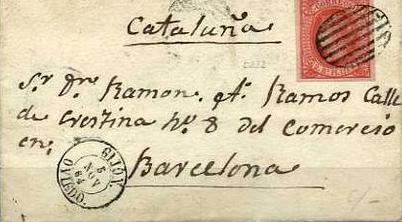 Cataluña
CORREOS
Sr. Dn. Ramon. qt. Ramos Calle
de Crestina No. 8 del Comercio
en;
Barcelona
GIJON
5
NOV
64
OVIEDO.